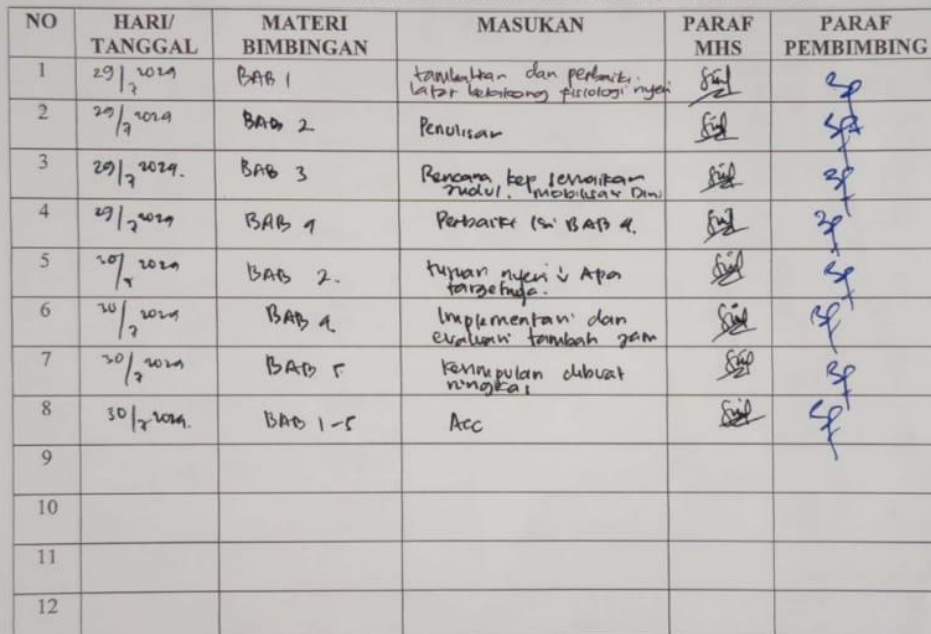 NO HARI/ TANGGAL MATERI BIMBINGAN MASUKAN PARAF MHS PARAF PEMBIMBING
1 29/7 2024 BAB 1 tambahkan dan perbaiki
latar belakang fisiologi nyeri
2 29/7 2024 BAB 2 Penulisan
3 29/7 2024. BAB 3 Rencana kep sesuaikan
judul. mobilisasi Dini
4 29/7 2024 BAB 4 Perbaiki isi BAB 4.
5 30/7 2024 BAB 2. tujuan nyeri ↓ Apa
targetnya.
6 30/7 2024 BAB 4 Implementasi dan
evaluasi tambah jam
7 30/7 2024 BAB 5 Kesimpulan dibuat
ringkas
8 30/7 2024. BAB 1-5 Acc
9
10
11
12